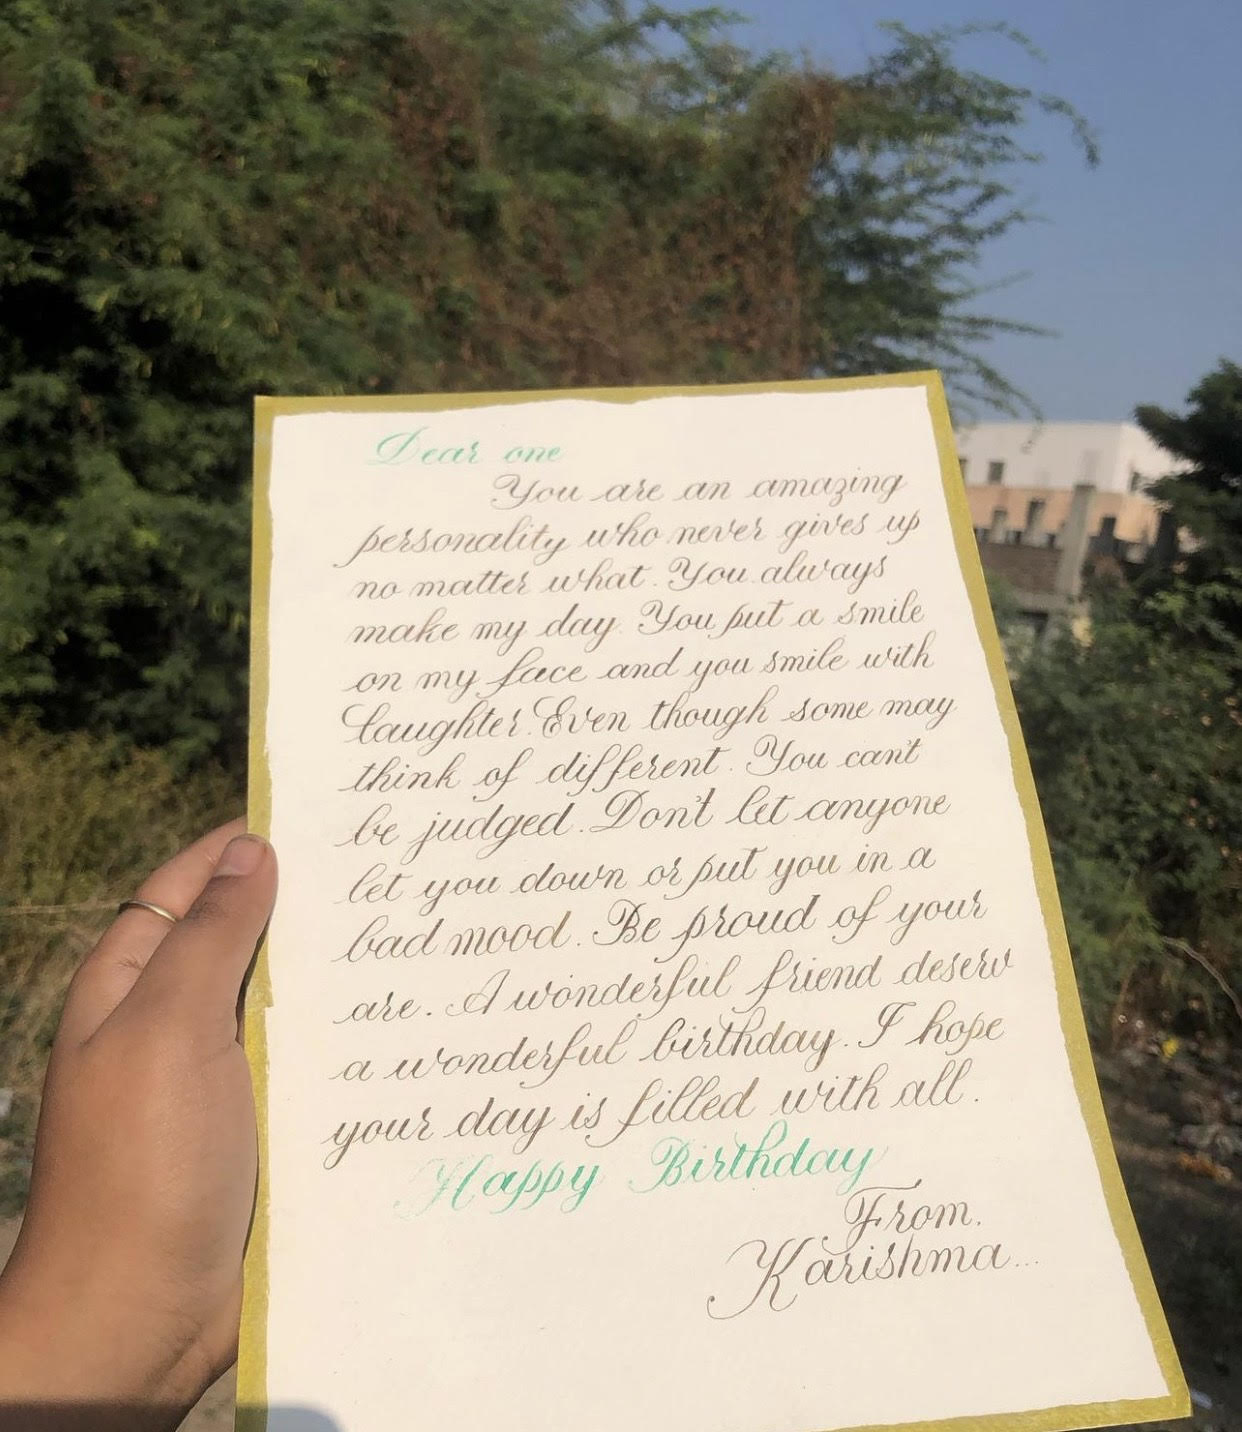 Dear one
You are an amazing
personality who never gives up
no matter what. You always
make my day. You put a smile
on my face and you smile with
Laughter. Even though some may
think of different. You can't
be judged. Don't let anyone
let you down or put you in a
bad mood. Be proud of your
are. A wonderful friend deserv
a wonderful birthday. I hope
your day is filled with all.
Happy Birthday
From,
Karishma...